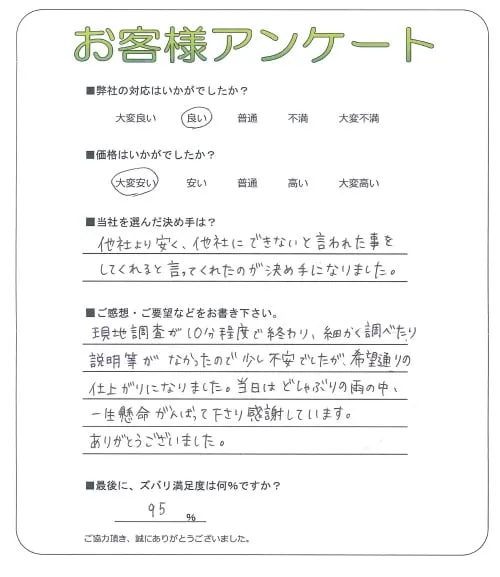 お客様アンケート
■弊社の対応はいかがでしたか?
大変良い 良い 普通 不満 大変不満
■価格はいかがでしたか?
大変安い 安い 普通 高い 大変高い
■当社を選んだ決め手は?
他社より安く、他社にできないと言われた事を
してくれると言ってくれたのが決め手になりました。
■ご感想・ご要望などをお書き下さい。
現地調査が10分程度で終わり、細かく調べたり
説明等がなかったので少し不安でしたが、希望通りの
仕上がりになりました。当日はどしゃぶりの雨の中、
一生懸命がんばって下さり感謝しています。
ありがとうございました。
■最後に、ズバリ満足度は何%ですか?
95 %
ご協力頂き、誠にありがとうございました。